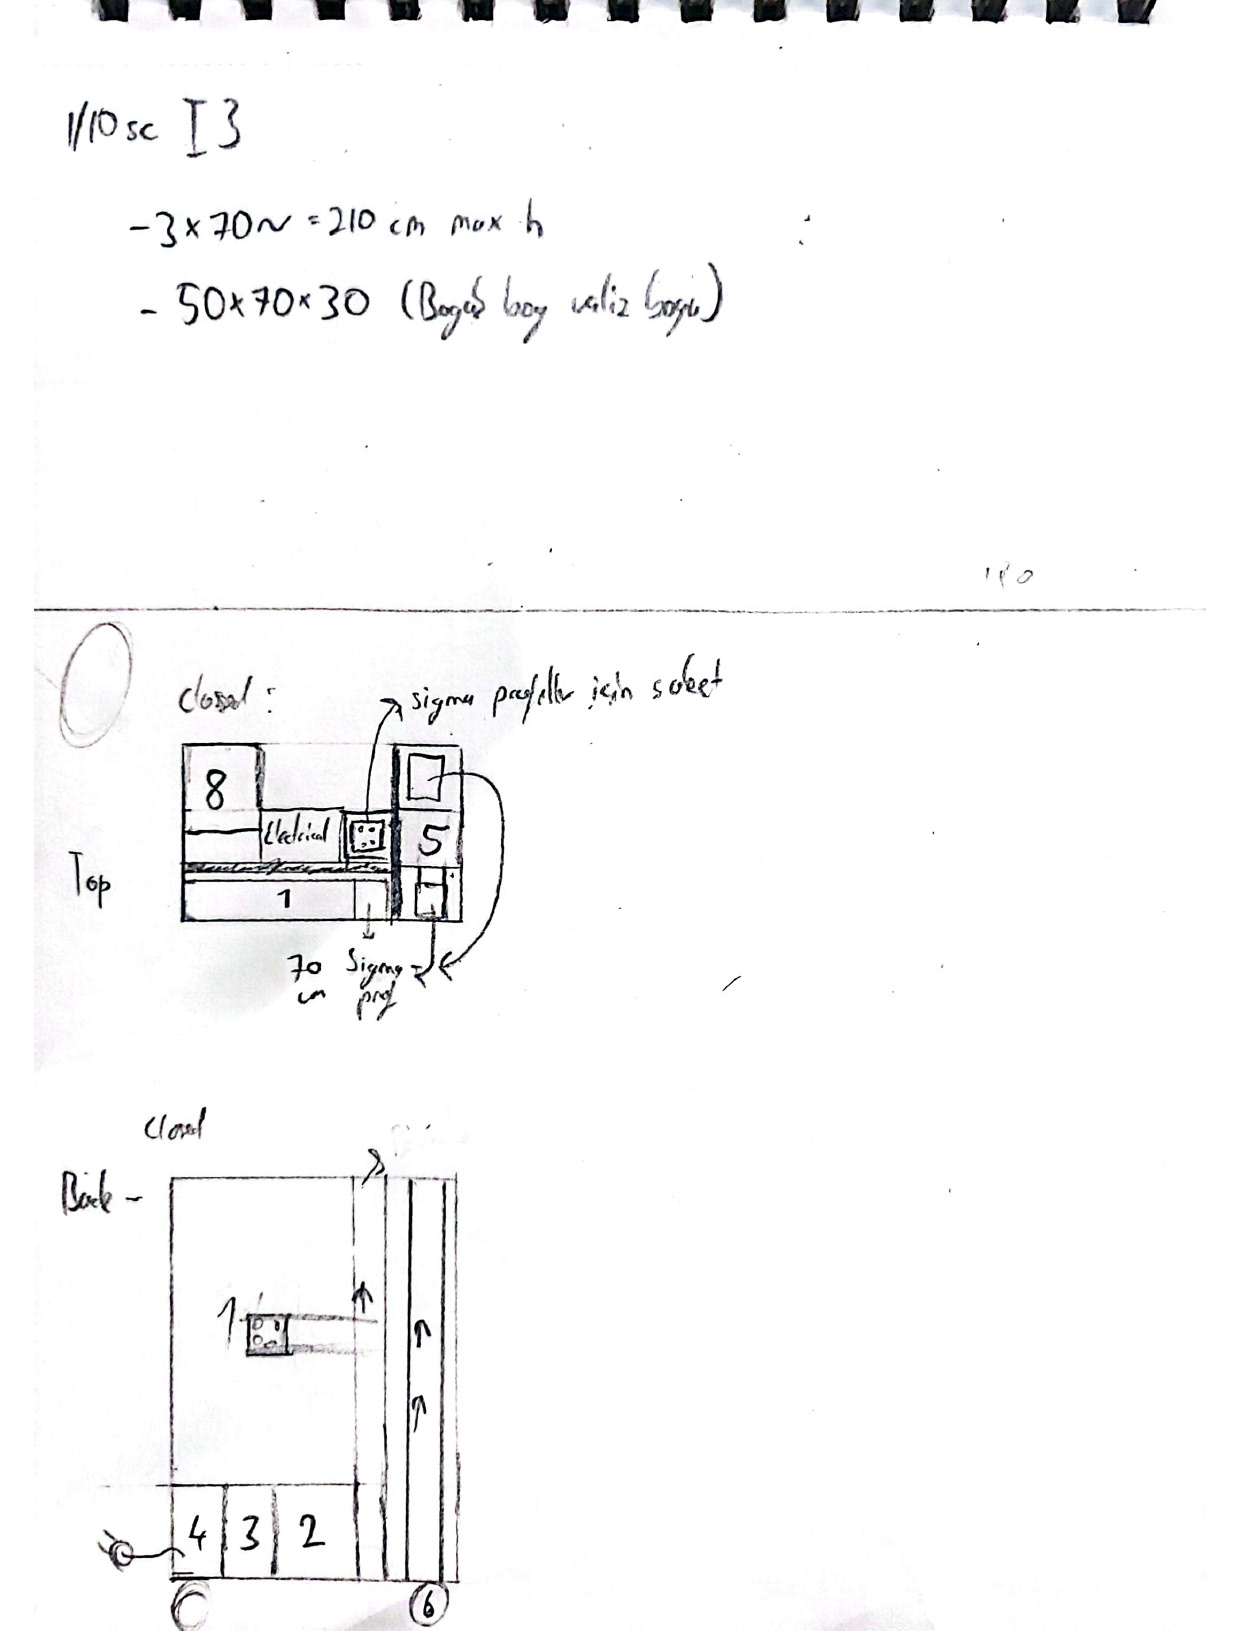 1/10 sc I 3
- 3 x 70 ~ = 210 cm max h
- 50 x 70 x 30 ( boy valiz boyu)
Closed :
sigma profiller için soket
8
Electrical
5
Top
1
70 cm
Sigma prof
Closed
Back -
1
4 3 2
6